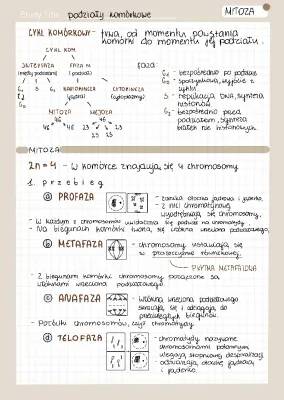 Study Title: podziały komórkowe
MITOZA
CYKL KOMÓRKOWY - trwa, od momentu powstania
komórki do momentu jej podziału.
CYKL KOM.
INTERFAZA
(między podziałami)
FAZA M
(podział)
G₁ S G₂
G₀
KARIOKINEZA
(jądra)
CYTOKINEZA
(cytoplazmy)
MITOZA MEJOZA
46 46
46 46 23 23
23 23
FAZA:
G₁ - bezpośrednio po podziale
G₀ - spoczynkowa, wyjście z
cyklu
S - replikacja DNA, synteza
histonów
G₂ - bezpośrednio przed
podziałem, synteza
białek nie histonowych.
MITOZA
2n = 4 - w komórce znajdują się 4 chromosomy
1. przebieg
a PROFAZA
- zanika otoczka jądrowa i jąderko.
- z nici chromatynowej
wyodrębniają się chromosomy.
- W każdym z chromosomów uwidaczniają się podział na chromatydy
- Na biegunach komórki tworzą się włókna wrzeciona podziałowego.
b METAFAZA
- chromosomy ustawiają się
w płaszczyźnie równikowej.
PŁYTKA METAFAZOWA
- Z biegunami komórki chromosomy połączone są
włóknami wrzeciona podziałowego.
c ANAFAZA
- włókna wrzeciona podziałowego
skracają się i odciągają do
przeciwległych biegunów.
- Połówki chromosomów, czyli chromatydy.
d TELOFAZA
- chromatydy nazywane
chromosomami potomnymi
ulegają stopniowej despiralizacji
- odtwarzają otoczkę jądrową
i jąderko.